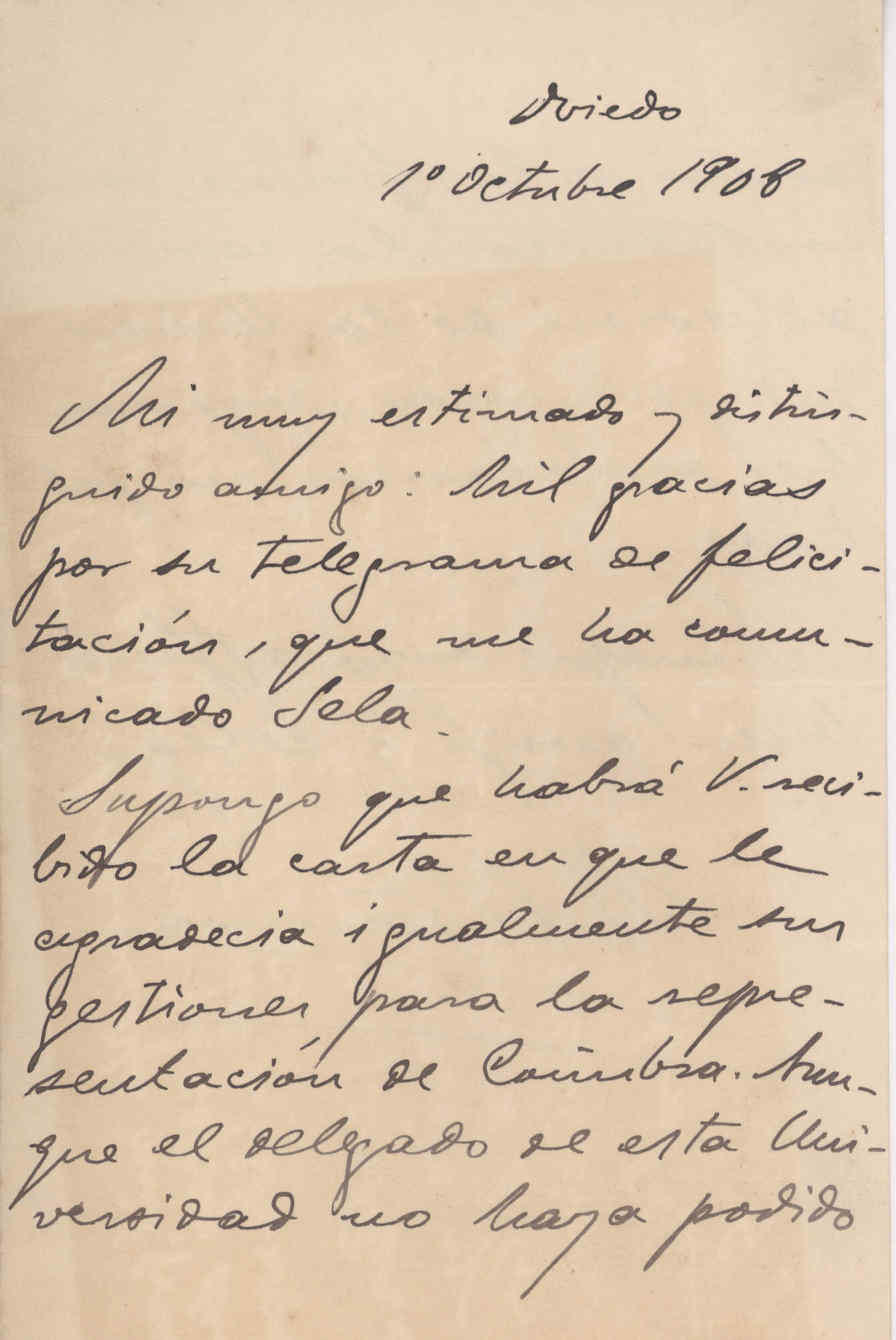 Oviedo
1º Octubre 1908
Mi muy estimado y distin-
guido amigo: Mil gracias
por su telegrama de felici-
tación, que me ha comu-
nicado Sela.
Supongo que habrá V. reci-
bido la carta en que le
agradecia igualmente sus
gestiones para la repre-
sentación de Coimbra. Aun-
que el delegado de esta Uni-
versidad no haya podido